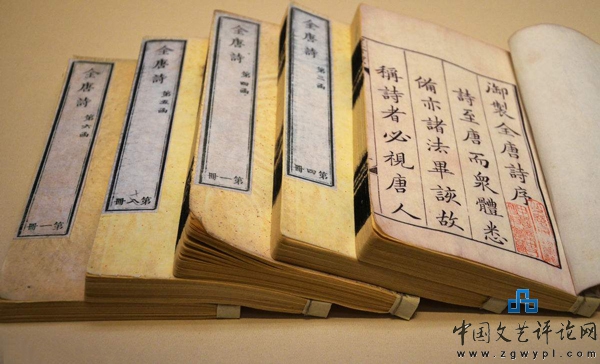 全唐詩
第六函
第一冊
全唐詩
第五函
第八冊
全唐詩
第四函
第一冊
全唐詩
第三函
第四冊
御製全唐詩序
詩至唐而衆體悉
備亦諸法畢該故
稱詩者必視唐人
中国文艺评论网
www.zgwypl.com